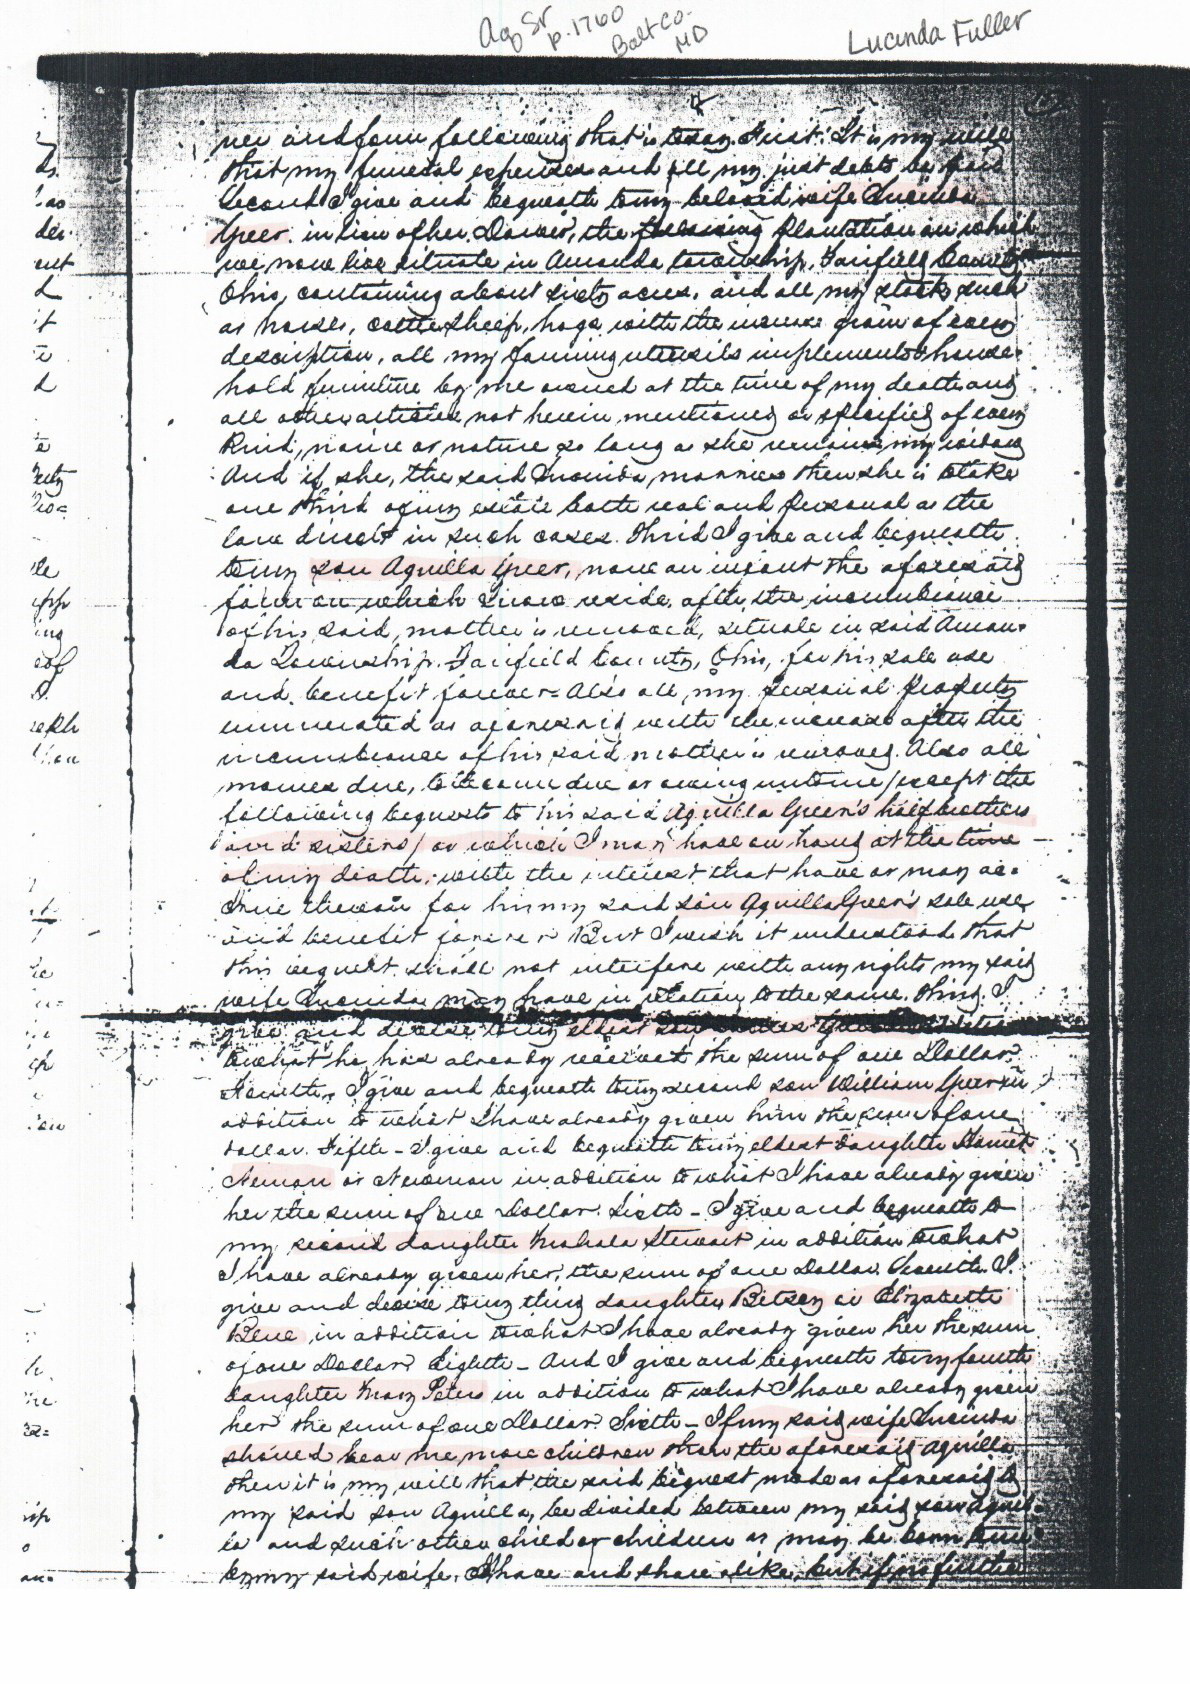 Aq Sr
p. 1760
Balt Co.
MD
Lucinda Fuller
ner and form following that is to say. First. It is my will
that my funeral expenses and all my just debts be paid
Second I give and bequeath to my beloved wife Lucinda
Greer. in lieu of her Dower, the following Plantation on which
we now live situate in Amanda township, Fairfield County
Ohio, containing about sixty acres. and all my stock such
as horses, cattle sheep, hogs, with the increase grain of every
description, all my farming utensils implements & house-
hold furniture by me owned at the time of my death and
all other articles not herein mentioned or specified of every
Kind, name or nature so long as she remains my widow
And if she, the said Lucinda marries then she is to take
one third of my estate both real and personal as the
law direct in such cases. Thrid I give and bequeath
to my son Aquilla Greer, now an infant the aforesaid
farm on which I now reside, after the incumbrance
of his said, mother is removed, situate in said Aman-
da Township. Fairfield County, Ohio, for his sole use
and benefit forever - Also all, my personal property
enumerated as aforesaid with the increase after the
incumbrance of his said mother is removed. Also all
monies due, to become due or owing unto me (except the
following bequests to his said Aquilla Greer's half brothers
and sisters) or which I may have on hand at the time
of my death, with the interest that have or may ac-
crue thereon for him my said son Aquilla Greer's sole use
and benefit forever But I wish it understood that
this bequest shall not interfere with any rights my said
wife Lucinda may have in relation to the same. Third. I
give and devise to my eldest son
to what he has already received the sum of one Dollar.
Fourth, I give and bequeath to my second son William Greer in
addition to what I have already given him the sum of one
dollar. Fifth - I give and bequeath to my eldest daughter Harriet
Neman or Newman in addition to what I have already given
her the sum of one Dollar. Sixth - I give and bequeath to
my second daughter Mahala Stewart in addition to what
I have already given her, the sum of one Dollar. Seventh. I
give and devise to my third daughter Betsey or Elizabeth
in addition to what I have already given her the sum
of one Dollar Eighth - And I give and bequeath to my fourth
daughter Mary Peters in addition to what I have already given
her the sum of one Dollar. Sixth - If my said wife Lucinda
should bear me more children than the aforesaid Aquilla
then it is my will that the said bequest made as aforesaid to
my said son Aquilla, be divided between my said son Aquil-
la and such other child or children as may be born to me
by my said wife. Share and share alike, but if no further